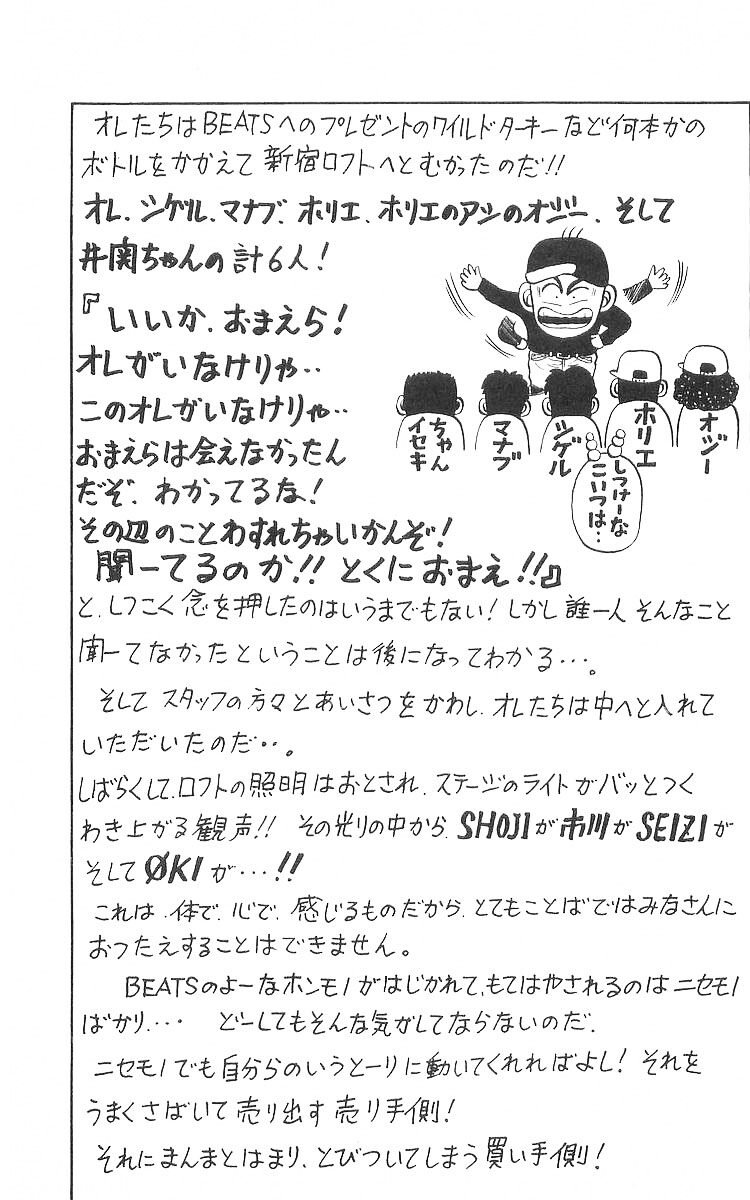 オレたちはBEATSへのプレゼントのワイルドターキーなど何本かの
ボトルをかかえて新宿ロフトへとむかったのだ!!
オレ、シゲル、マナブ、ホリエ、ホリエのアシのオジー、そして
井関ちゃんの計6人!
『いいか、おまえら!
オレがいなけりゃ‥
このオレがいなけりゃ‥
おまえらは会えなかったん
だぞ、わかってるな!
その辺のことわすれちゃいかんぞ!
聞ーてるのか!!とくにおまえ!!』
オジー
ホリエ
シゲル
マナブ
ちゃん
イセキ
しつけーな
こいつは…
と、しつこく念を押したのはいうまでもない!しかし誰一人そんなこと
聞ーてなかったということは後になってわかる…。
そしてスタッフの方々とあいさつをかわし、オレたちは中へと入れて
いただいたのだ‥。
しばらくして、ロフトの照明はおとされ、ステージのライトがバッとつく
わき上がる観声!!その光りの中から、SHOJIが市川がSEIZIが
そしてØKIが…!!
これは、体で、心で、感じるものだから、とてもことばではみなさんに
おつたえすることはできません。
BEATSのよーなホンモノがはじかれて、もてはやされるのはニセモノ
ばかり…・ どーしてもそんな気がしてならないのだ.
ニセモノでも自分らのいうとーりに動いてくれればよし!それを
うまくさばいて売り出す売り手側!
それにまんまとはまり、とびついてしまう買い手側!